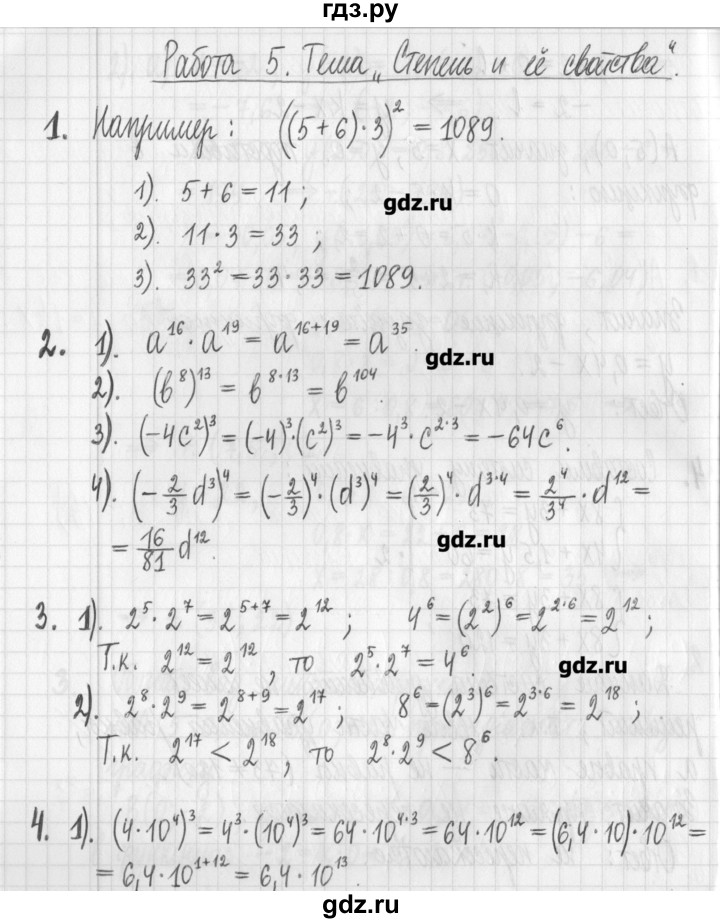 гдз.ру
Работа 5. Тема „Степень и её свойства“.
1. Например: ((5+6)·3)² = 1089.
1). 5+6=11;
gdz.ru
2). 11·3=33;
3). 33²=33·33=1089.
2. 1). a¹⁶·a¹⁹ = a¹⁶⁺¹⁹ = a³⁵.
gdz.ru
2). (b⁸)¹³ = b⁸·¹³ = b¹⁰⁴.
3). (-4c²)³ = (-4)³·(c²)³ = -4³·c²·³ = -64c⁶.
4). (-2/3 d³)⁴ = (-2/3)⁴·(d³)⁴ = (2/3)⁴·d³·⁴ = 2⁴/3⁴·d¹² =
= 16/81 d¹².
gdz.ru
3. 1). 2⁵·2⁷=2⁵⁺⁷=2¹²; 4⁶=(2²)⁶=2²·⁶=2¹²;
Т.к. 2¹²=2¹², то 2⁵·2⁷=4⁶.
gdz.ru
2). 2⁸·2⁹=2⁸⁺⁹=2¹⁷; 8⁶=(2³)⁶=2³·⁶=2¹⁸;
Т.к. 2¹⁷<2¹⁸, то 2⁸·2⁹<8⁶.
4. 1). (4·10⁴)³=4³·(10⁴)³=64·10⁴·³=64·10¹²=(6,4·10)·10¹²=
=6,4·10¹⁺¹²=6,4·10¹³.
gdz.ru